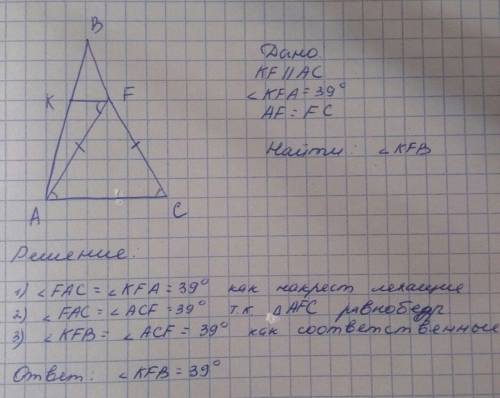 B
K
F
A
C
Дано
KF // AC
∠KFA = 39°
AF = FC
Найти: ∠KFB
Решение:
1) ∠FAC = ∠KFA = 39° как накрест лежащие
2) ∠FAC = ∠ACF = 39° т.к. △AFC равнобедр
3) ∠KFB = ∠ACF = 39° как соответственные
Ответ: ∠KFB = 39°